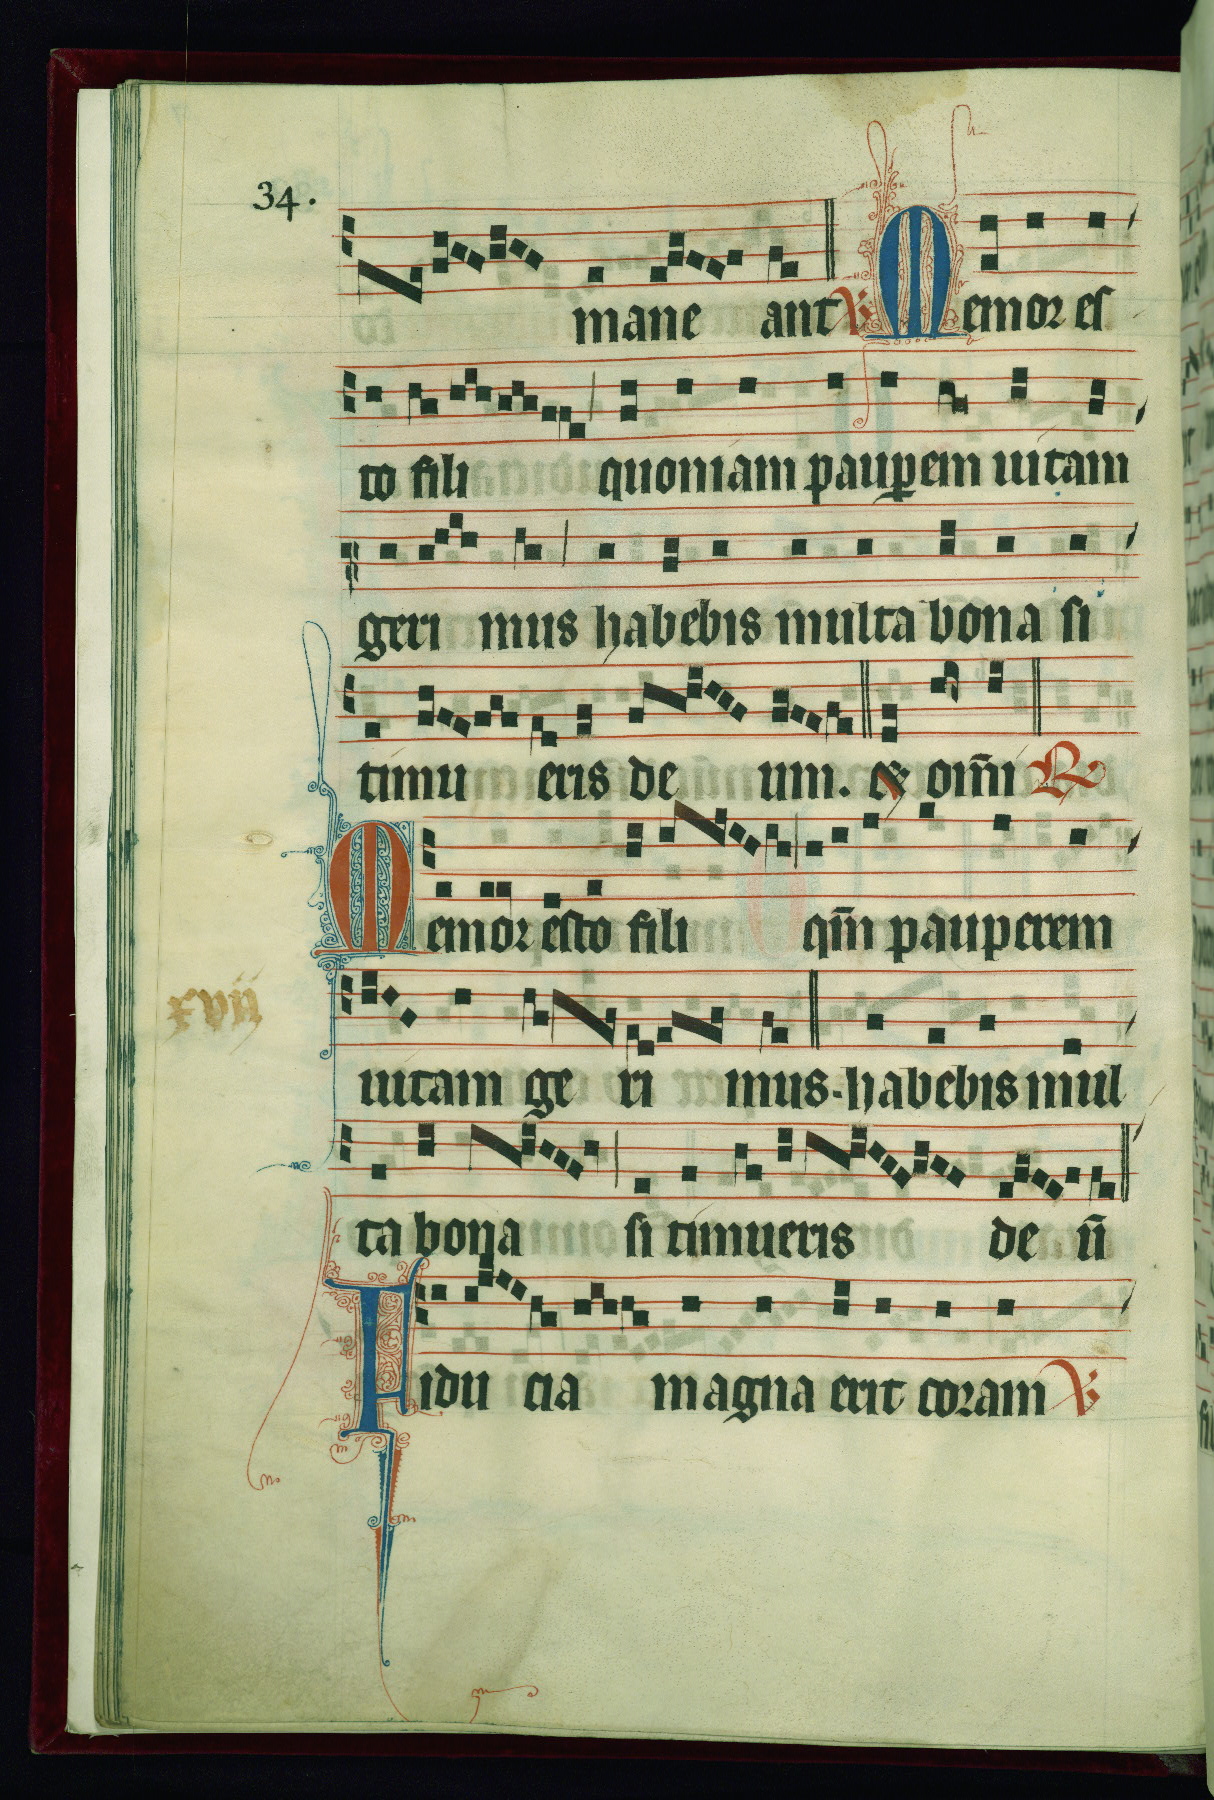 34.
mane ant ℣ Memor es
to fili quoniam paup̲em uitam
geri mus habebis multa bona si
timu eris de um. ex om̄i ℟
Memor esto fili qm̄ pauperem
xvij
uitam ge ri mus·habebis mul
ta bona si timueris de ū
Fidu cia magna erit coram ℣